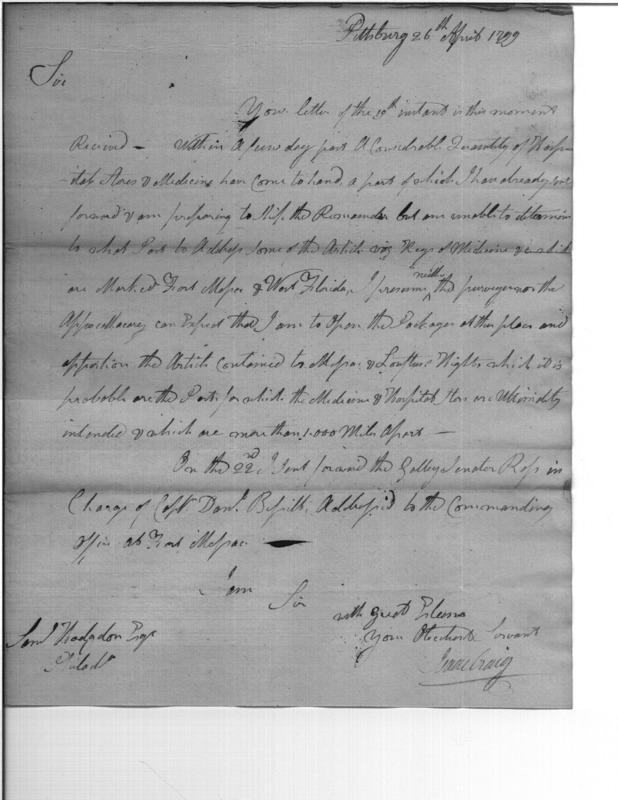 Pittsburg 26th April 1799
Sir
Your letter of the 19th instant is this moment
Recived – Within A few days past A Considrabl Quantity of Hosp-
ital Stores & Medicine have Come to hand, a part of which I have already sent
forward & am preparing to Ship the Remainder but am unable to determin
to what Post to Address some of the Articls viz Kegs of Medicine &c which
are Marked Fort Massac & West Florida, I presume neither the purveyor nor the
Appothecarey can Expect that I am to Open the Packages at this place and
apportion the Articls Contained to Massac & Loftus's Hights which it is
probable are the Posts for which the Medicine & Hospital Stors are Ultimately
intended & which are more than 1.000 Miles Apart –
On the 22nd I sent forward the Galley Senator Ross in
Charge of Capt Danl. Bissell, Addressed to the Commanding
Officer at Fort Massac –
I am
Sir
with great Esteem
Your Obedient Servant
Isaac Craig
Saml Hodgdon Esqr
Philada